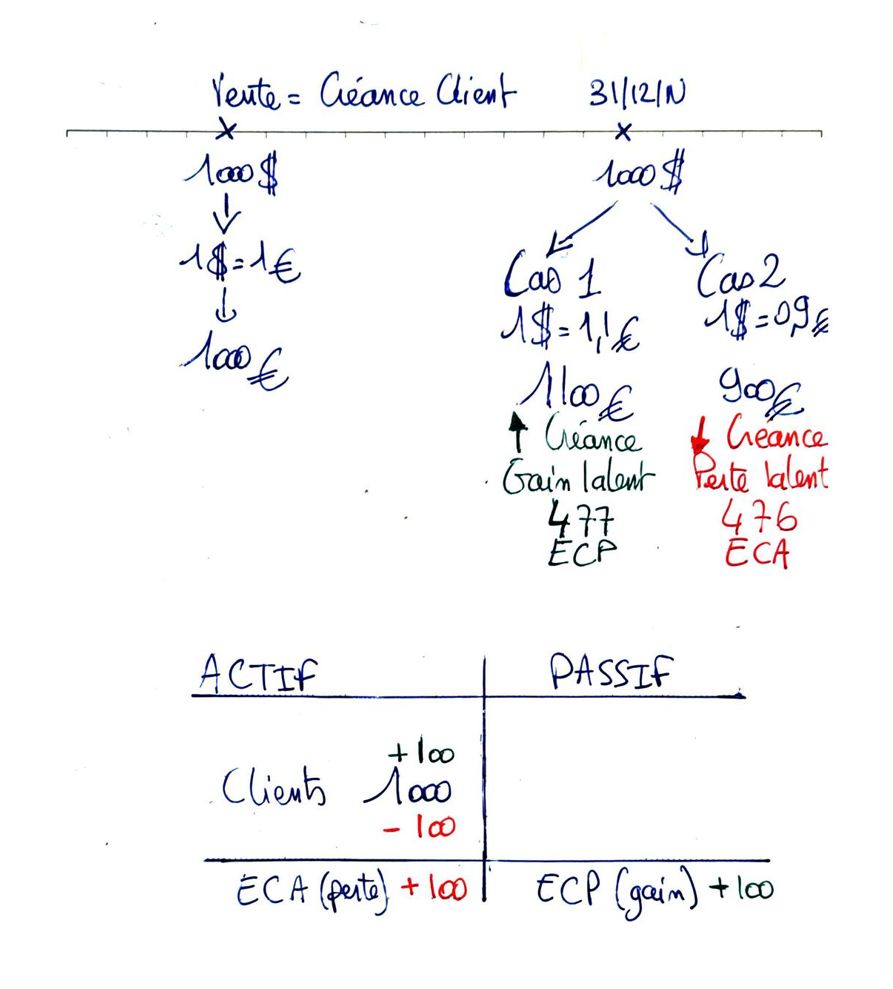 Vente = Créance Client
31/12/N
1000 $
1 $ = 1 €
1000 €
1000 $
Cas 1
1 $ = 1,1 €
1100 €
Créance
Gain latent
477
ECP
Cas 2
1 $ = 0,9 €
900 €
Créance
Perte latent
476
ECA
ACTIF
PASSIF
+100
Clients 1000
- 100
ECA (perte) +100
ECP (gain) +100